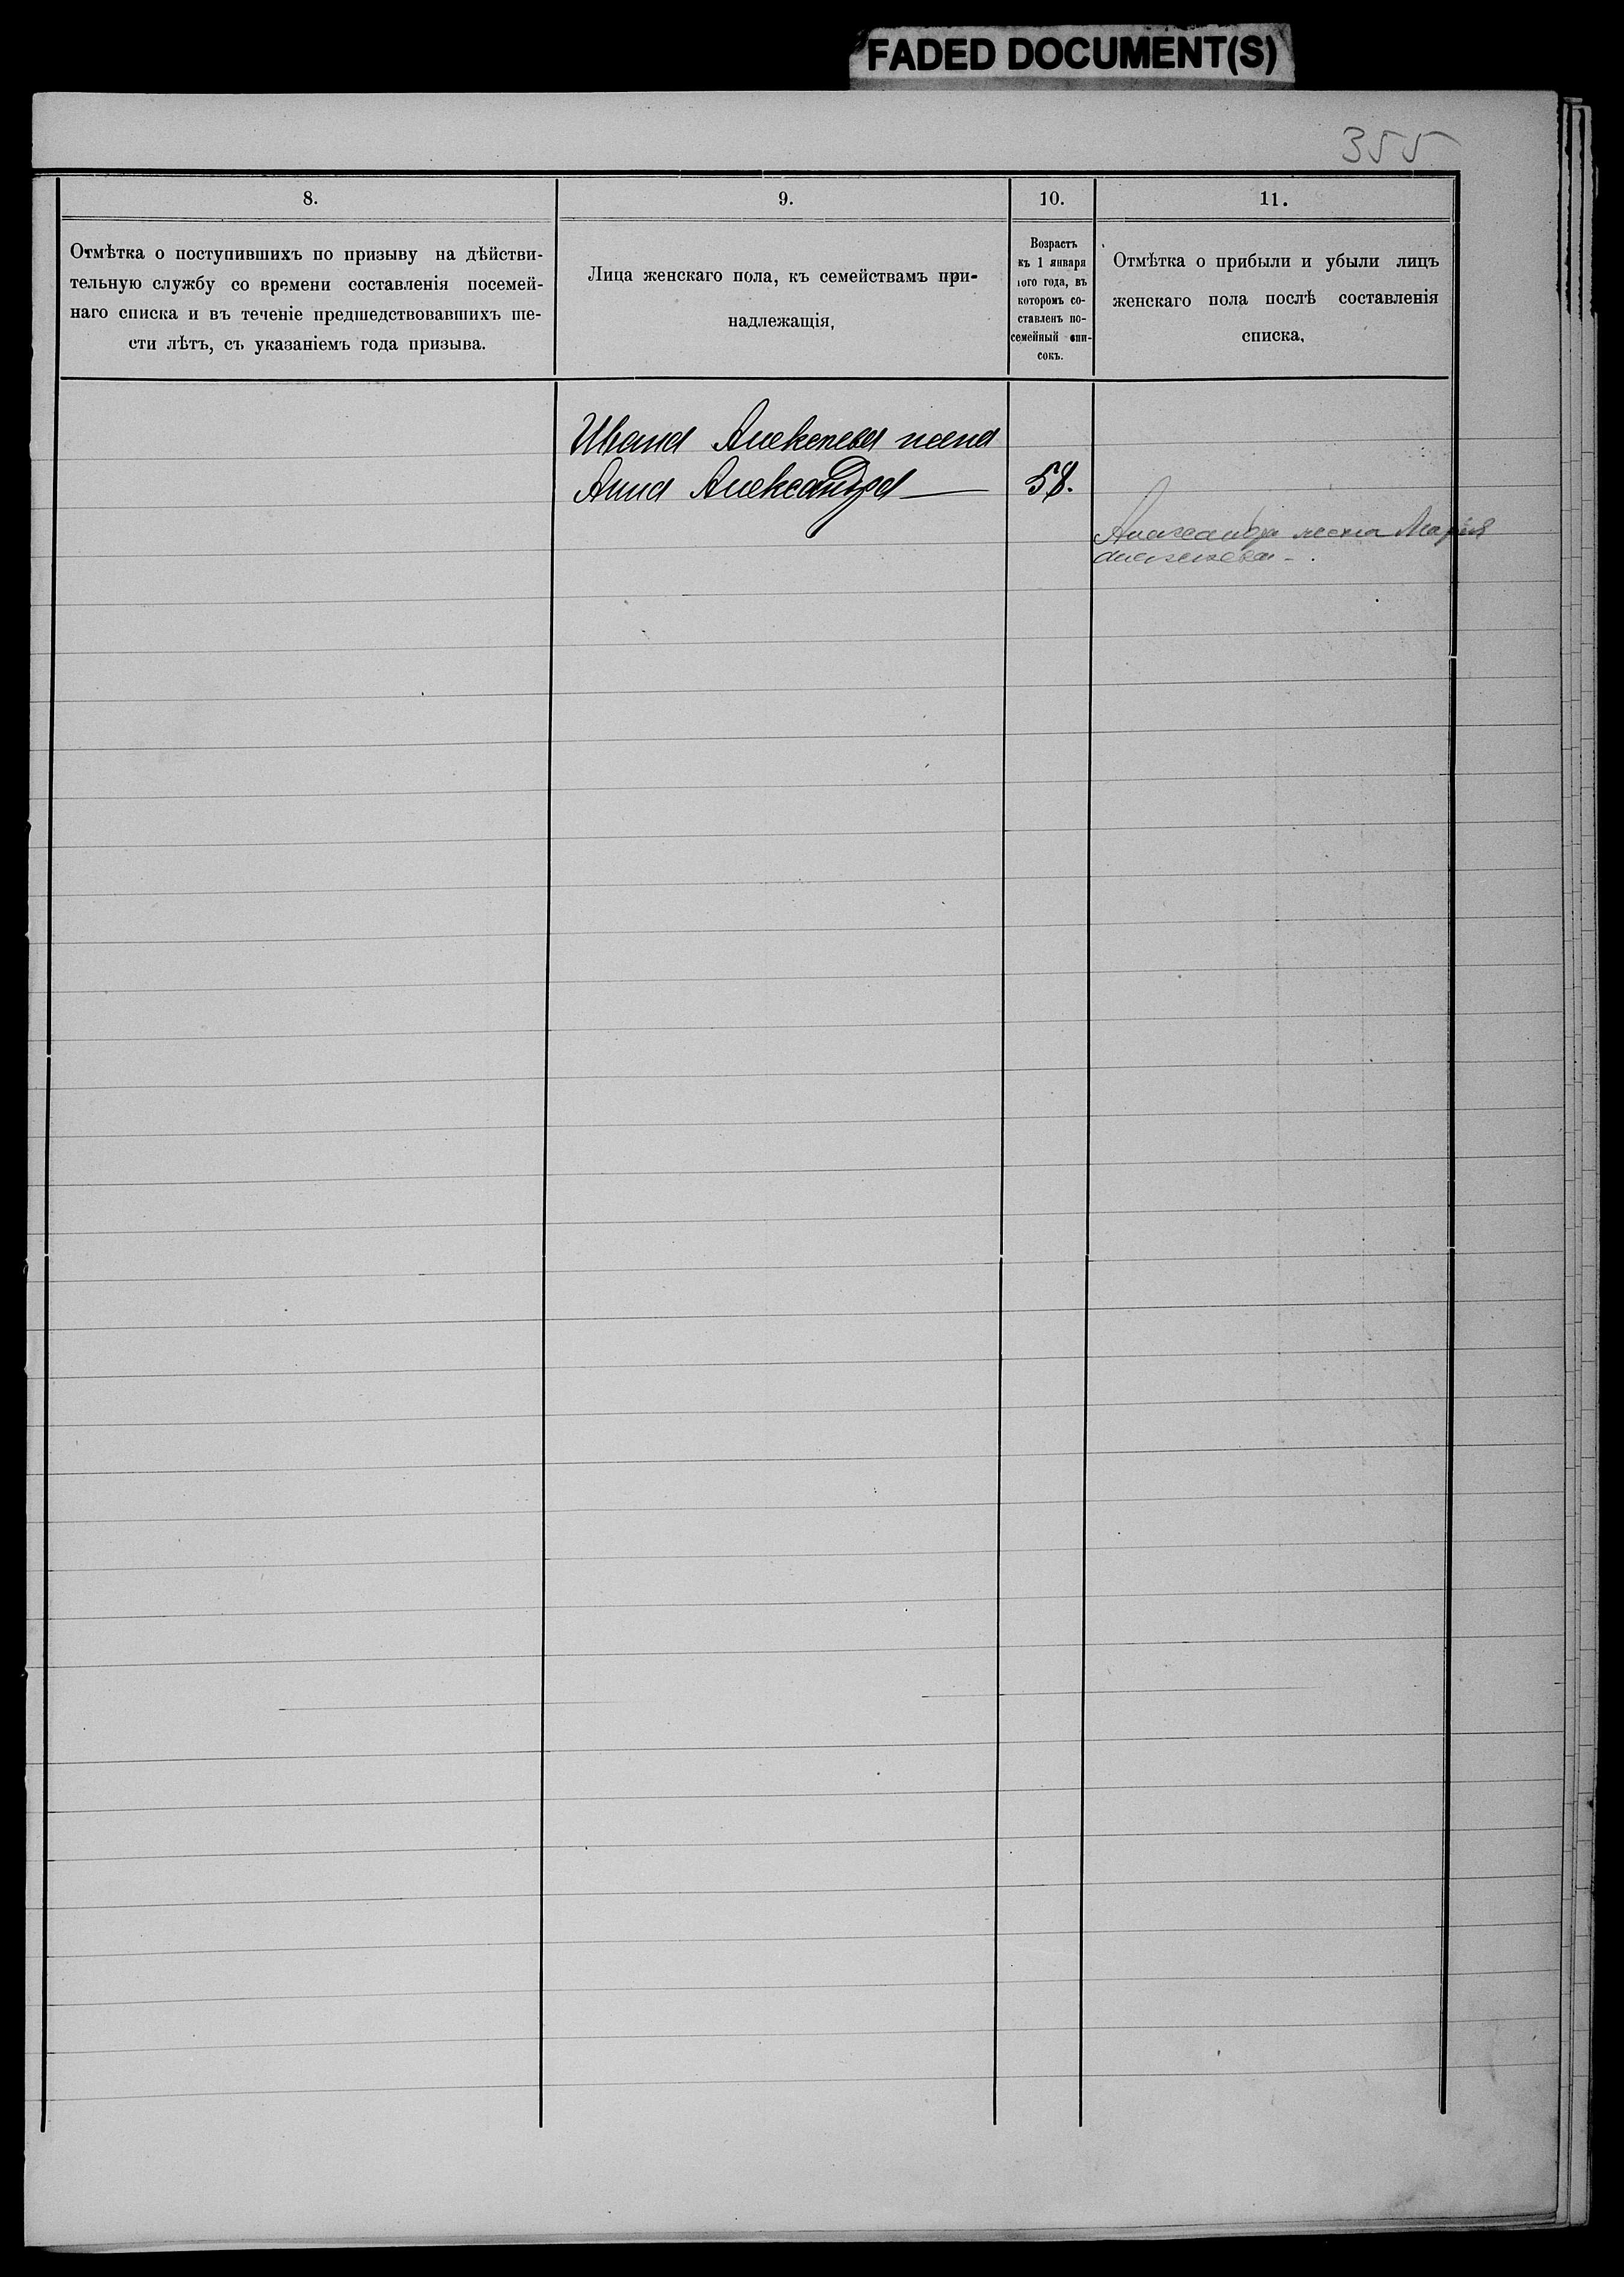 FADED DOCUMENT(S)
355
8.
9.
10.
11.
Отмѣтка о поступившихъ по призыву на дѣйстви-
тельную службу со времени составленія посемей-
наго списка и въ теченіе предшедствовавшихъ ше-
сти лѣтъ, съ указаніемъ года призыва.
Лица женскаго пола, къ семействамъ при-
надлежащія,
Возрастъ
къ 1 января
того года, въ
которомъ со-
ставленъ по-
семейный спи-
сокъ.
Отмѣтка о прибыли и убыли лицъ
женскаго пола послѣ составленія
списка,
Ивана Алексеева жена
Анна Александра —
58.
Александра жена Марія
Алексеева - .